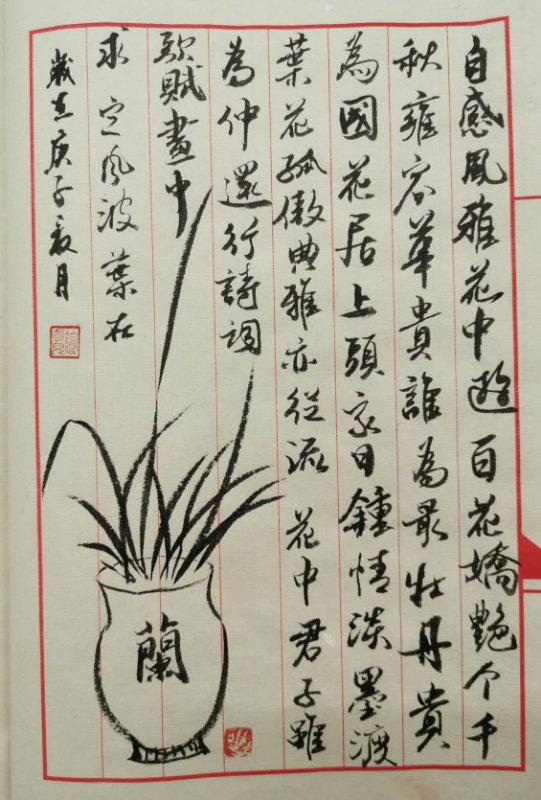 自感風雅花中遊百花嬌艷个千
秋雍容華貴誰為最牡丹貴
為國花居上頭家日鍾情淡墨渡
葉花孤傲典雅亦從流 花中君子雖
為仲還行詩詞
歌賦畫中
求 定風波 葉在
歲在庚子夏月
蘭